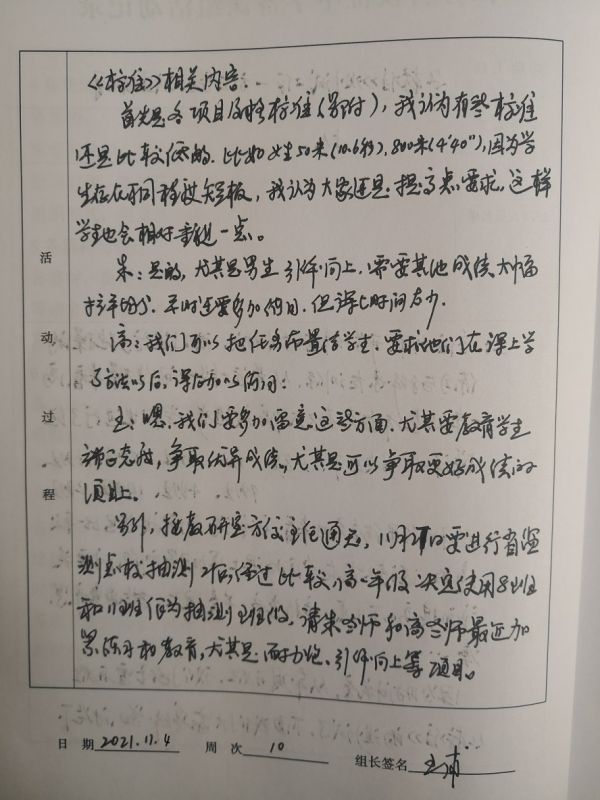 《标准》相关内容.
首先是各项目及格标准(另附),我认为有些标准
还是比较低的.比如女生50米(10.6秒),800米(4'40"),因为学
生存在不同程度短板,我认为大家还是提高点要求,这样
学生也会相对重视一点。
朱:是的,尤其是男生引体向上,需要其他成绩大幅
拉平均分.平时还要多加练习.但课上时间有少.
高:我们可以把任务布置给学生,要求他们在课上学
了方法以后,课后加以练习:
王:嗯.我们要多加留意这些方面.尤其要教育学生
端正态度,争取优异成绩,尤其是可以争取更好成绩的
项目上。
另外,接教研室方仪主任通知,11月27日要进行省监
测点校抽测工作,通过比较,高一年级决定使用8班
和11班作为抽测班级,请朱老师和高老师最近加
紧练习和教育,尤其是耐力跑、引体向上等项目。
活动过程
日 期 2021.11.4 周 次 10
组长签名 王